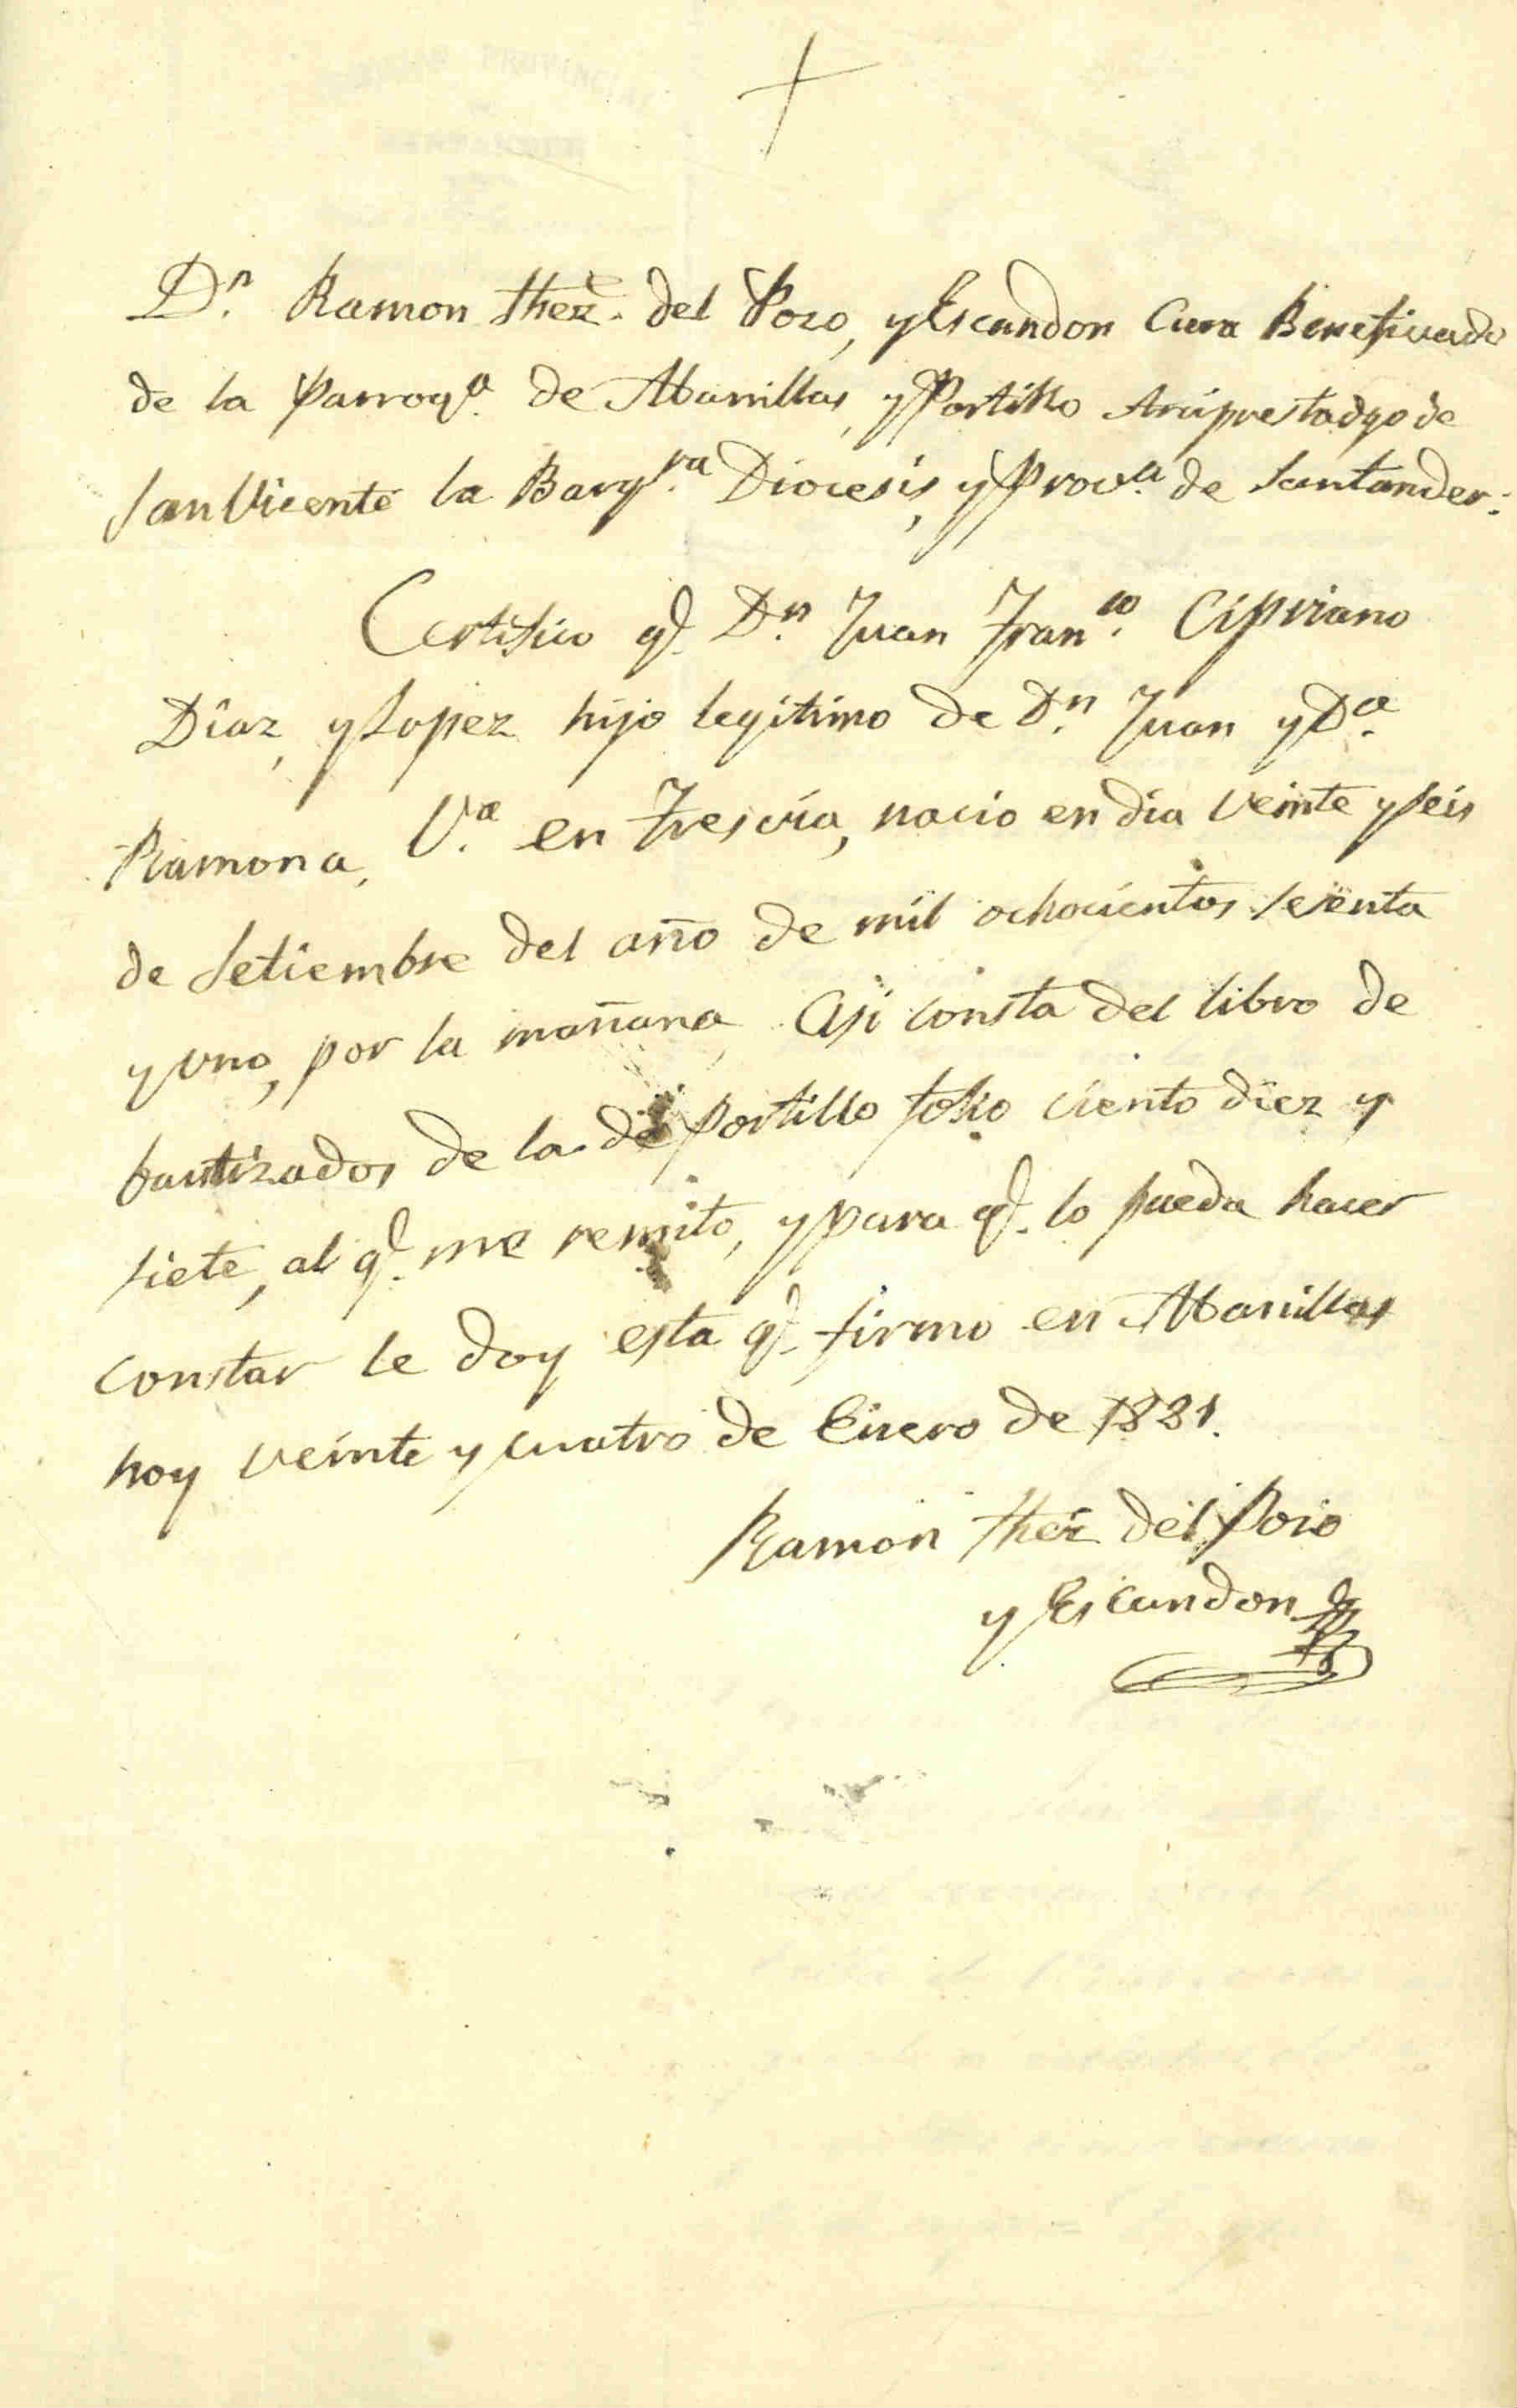 Dn. Ramon Fhez. del Pozo, y Escandon Cura Beneficiado
de la Parroqa. de Abanillas, y Portillo Arciprestadgo de
San Vicente la Barqra. Diocesis, y Prova. de Santander:
Certifico q. Dn. Juan Franco. Cipriano
Diaz, y Lopez hijo legitimo de Dn. Juan y Da.
Ramona, Va. en nacio en dia veinte y seis
de Setiembre del año de mil ochocientos sesenta
y uno, por la mañana. Asi consta del libro de
bautizados de la de Portillo folio ciento diez y
siete, al q. me remito, y para q. lo pueda hacer
constar le doy esta q. firmo en Abanillas
hoy veinte y cuatro de Enero de 1881.
Ramon Fhez del Pozo
y Escandon